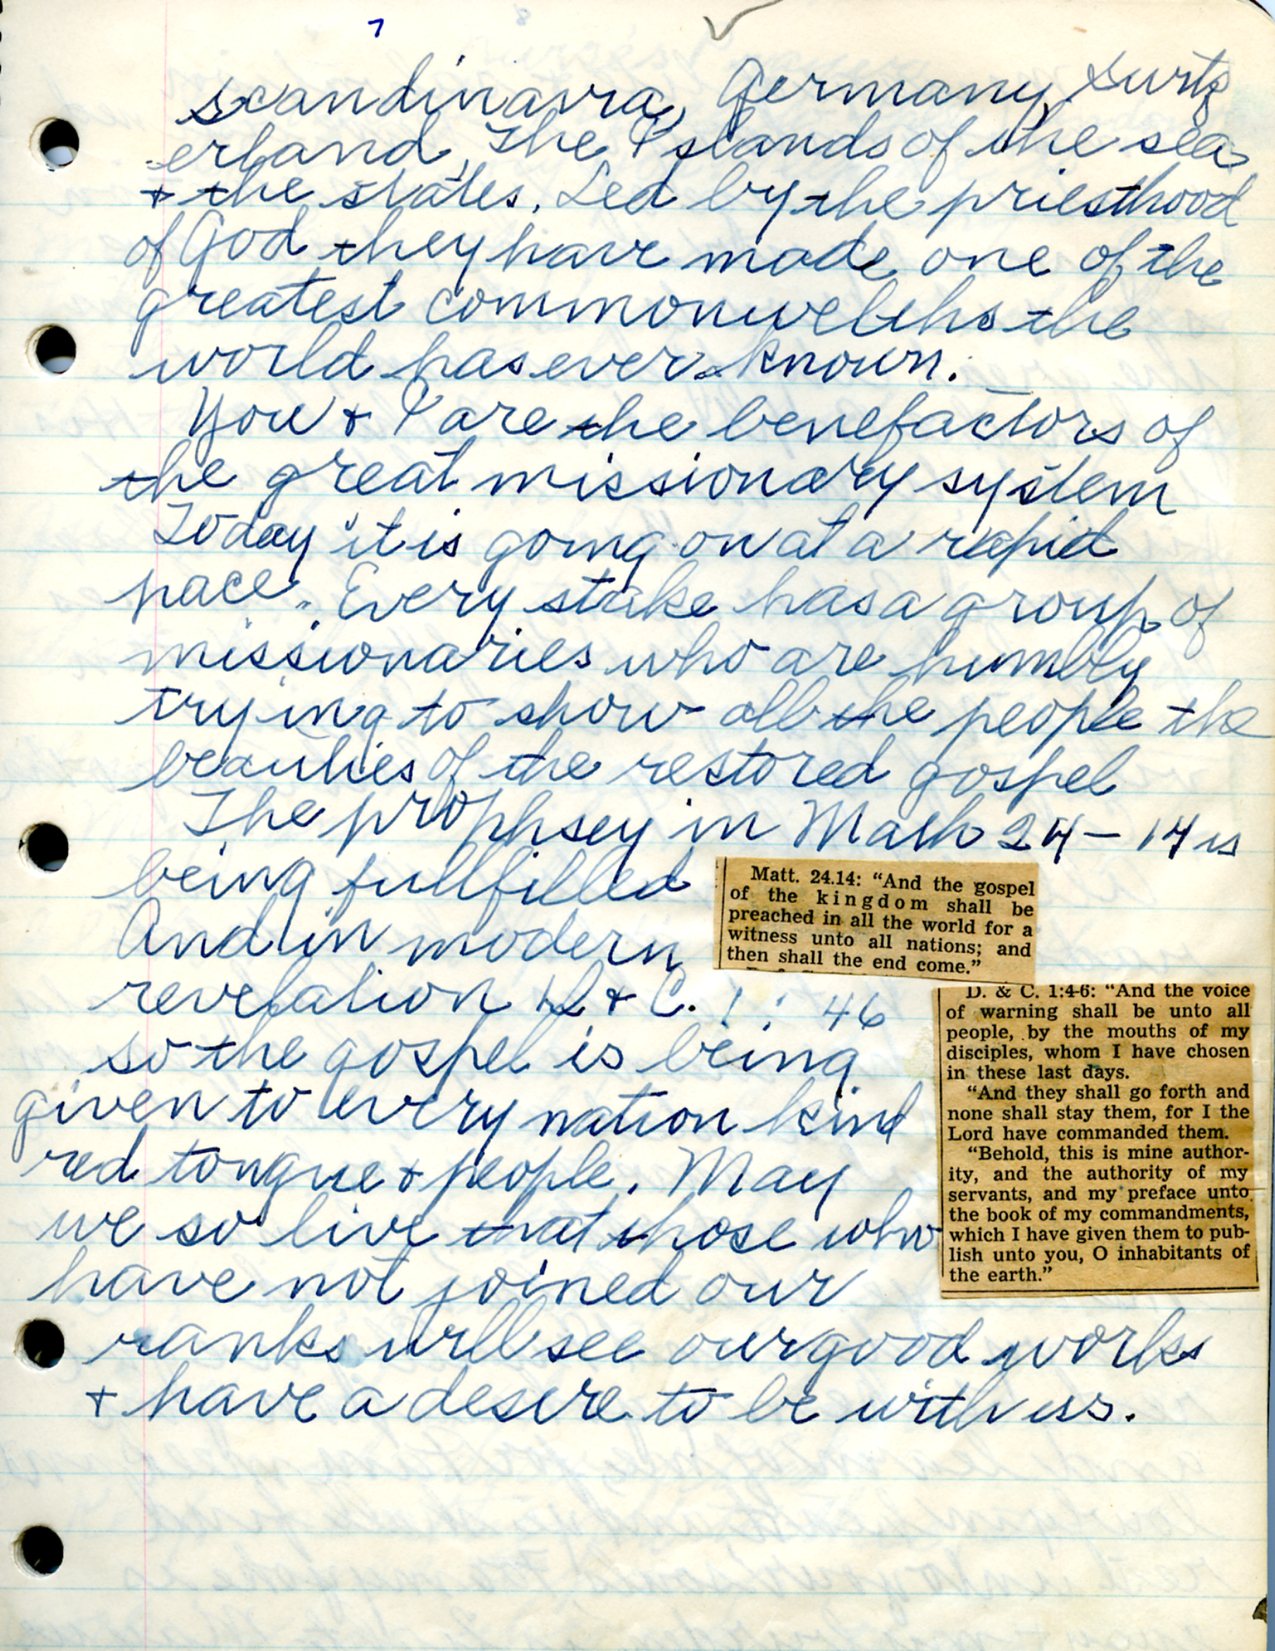 7
scandinavia, Germany, Surtz
erland, The Islands of the sea
+ the states. Led by the priesthood
of God they have made one of the
greatest commonwelths the
world has ever known.
You + I are the benefactors of
the great missionary system
Today it is going on at a rapid
pace. Every stake has a group of
missionaries who are humbly
trying to show all the people the
beauties of the restored gospel
The prophsey in Math 24-14 is
being fullfilled
Matt. 24.14: “And the gospel
of the kingdom shall be
preached in all the world for a
witness unto all nations; and
then shall the end come.”
And in modern
revelation D + C. 1: 46
D. & C. 1:4-6: “And the voice
of warning shall be unto all
people, by the mouths of my
disciples, whom I have chosen
in these last days.
“And they shall go forth and
none shall stay them, for I the
Lord have commanded them.
“Behold, this is mine author-
ity, and the authority of my
servants, and my preface unto
the book of my commandments,
which I have given them to pub-
lish unto you, O inhabitants of
the earth.”
so the gospel is being
given to every nation kind
red tongue + people. May
we so live that those who
have not joined our
ranks will see our good works
+ have a desire to be with us.